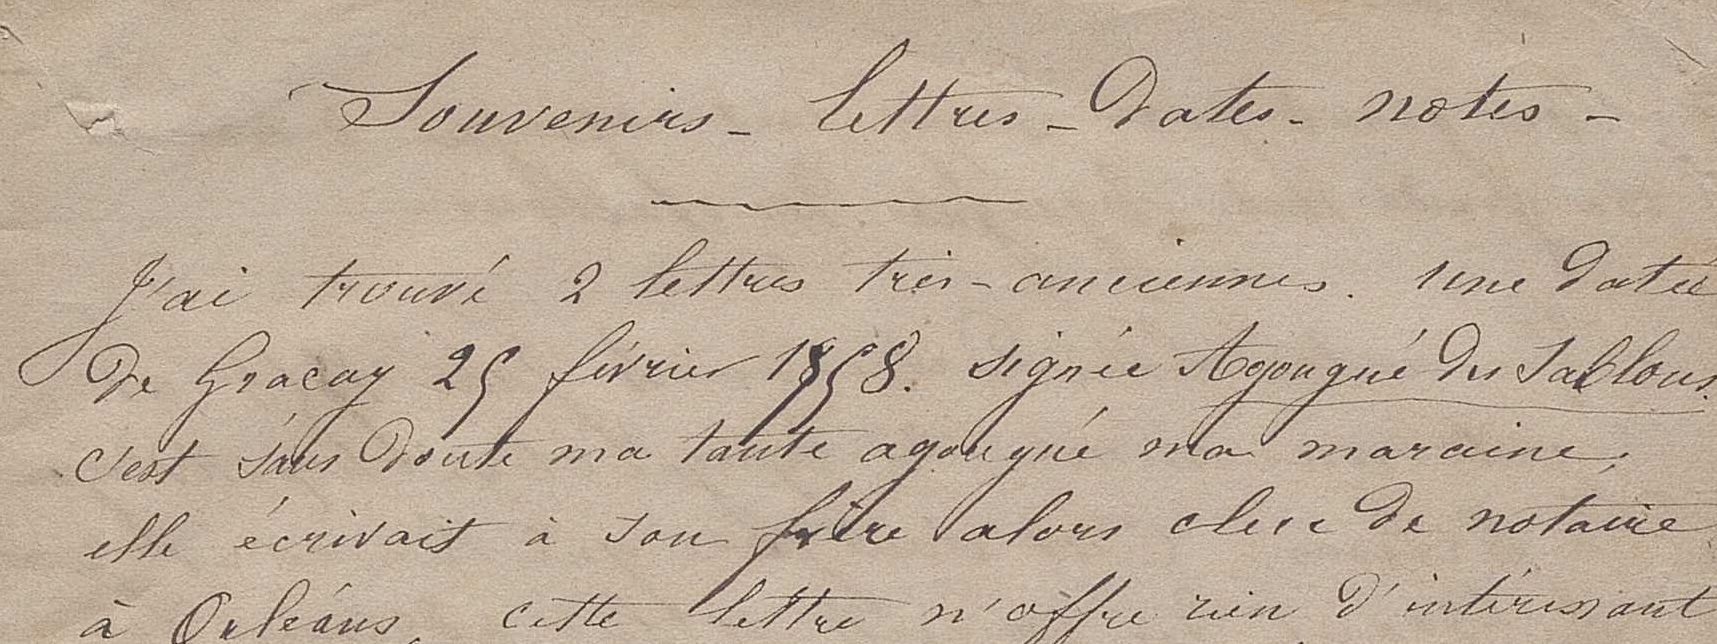 Souvenirs - lettres - Dates - notes -
J'ai trouvé 2 lettres très-anciennes. une datée
de Graçay 25 février 1858. signée Agougué des Sablons.
c'est sans doute ma tante agougué ma maraine,
elle écrivait à son frère alors clerc de notaire
à Orléans, cette lettre n'offre rien d'intéressant